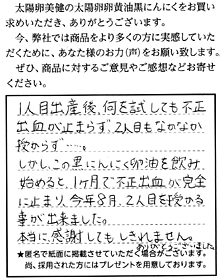 太陽卵美健の太陽卵卵黄油黒にんにくをお買い
求めいただき、ありがとうございます。
今、弊社では商品をより多くの方に実感していた
だくために、あなた様のお力(声)をお願い致します。
ぜひ、商品に対するご意見やご感想などお寄せ
ください。
1人目出産後、何を試しても不正
出血が止まらず、2人目もなかなか
授からず…。
しかし、この黒にんにく卵油を飲み
始めると、1ヶ月で不正出血が完全
に止まり、今年8月、2人目を授かる
事が出来ました。
本当に感謝してもしきれません。
ありがとうございました。
★匿名で紙面に掲載させていただく場合がございます。
尚、採用された方にはプレゼントを用意しております。